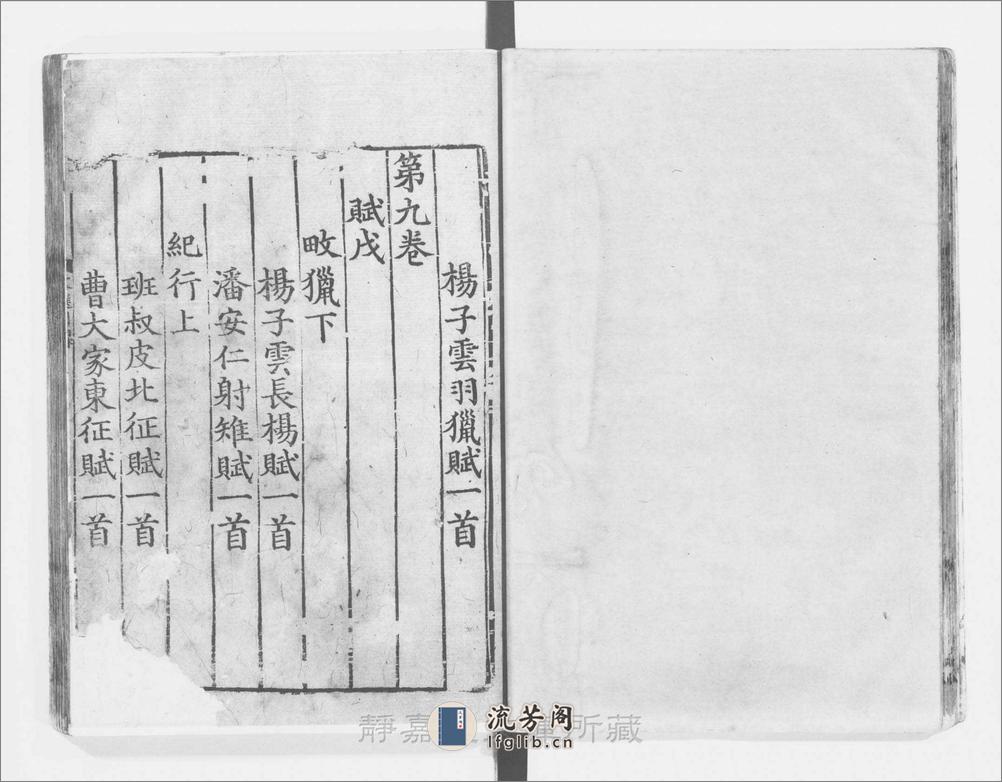 楊子雲羽獵賦一首
第九卷
賦戊
畋獵下
楊子雲長楊賦一首
潘安仁射雉賦一首
紀行上
班叔皮北征賦一首
曹大家東征賦一首
流芳阁
lfglib.cn
靜嘉
所藏